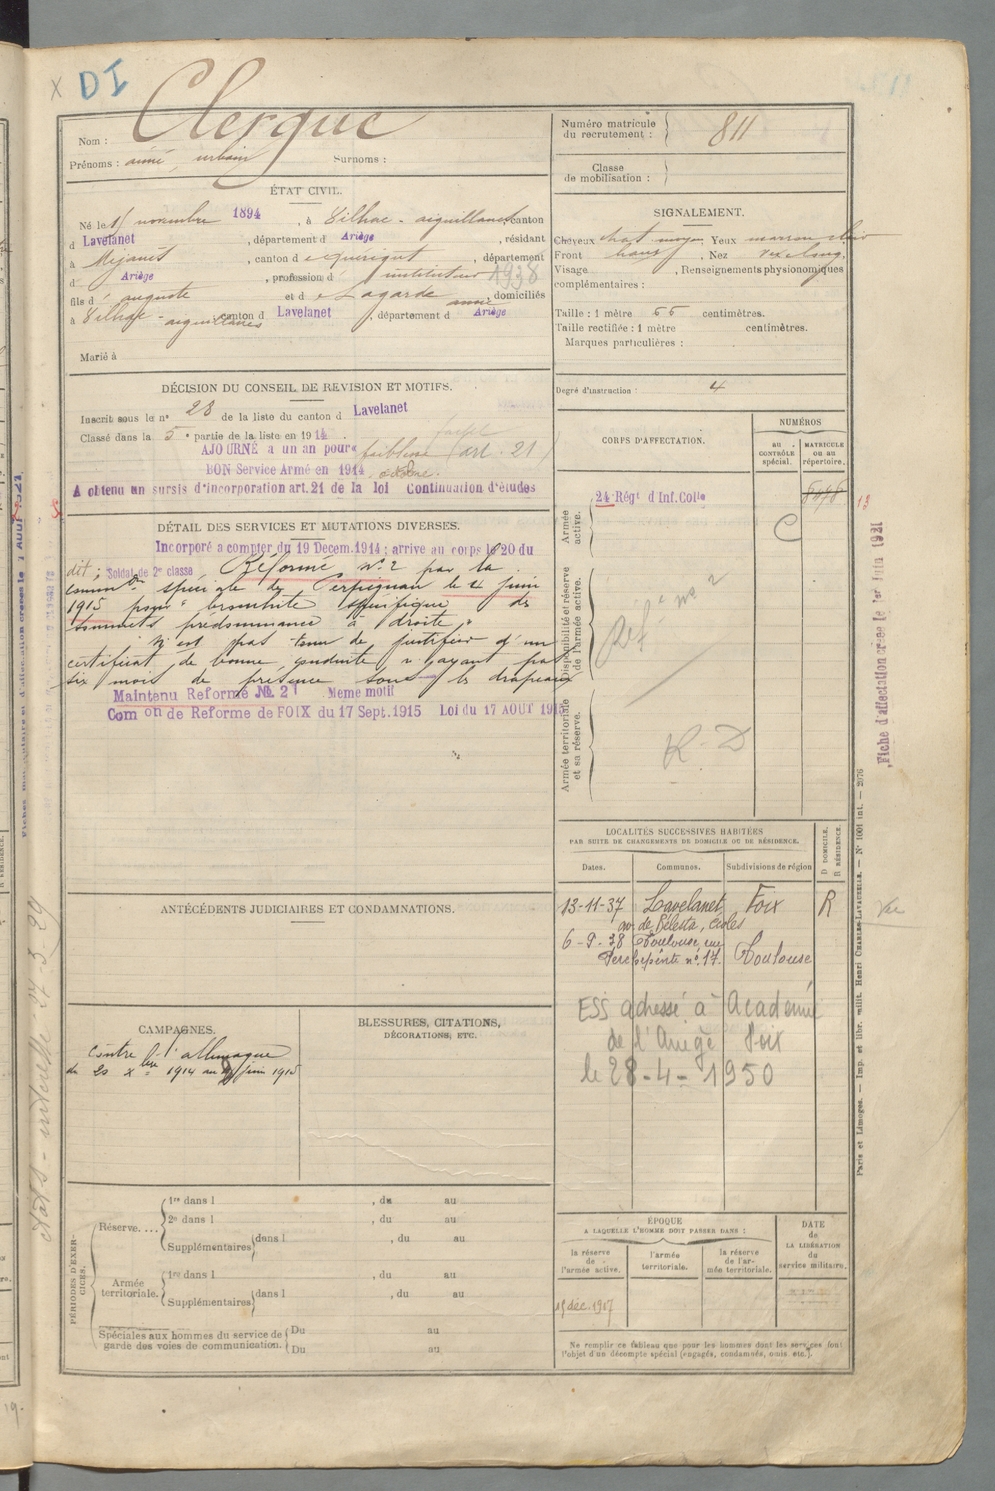 x DI
Nom : Clergue
Prénoms : aimé, urbain Surnoms :
ÉTAT CIVIL.
Né le 15 novembre 1894, à Bilhac-aiguillanes, canton
d Lavelanet, département d Ariège, résidant
à Mijanès, canton d e quérigut, département
d Ariège, profession d' instituteur 1938
fils d' auguste et d e Lagarde anne, domiciliés
à Bilhac-aiguillanes canton d Lavelanet, département d Ariège
Marié à
DÉCISION DU CONSEIL DE REVISION ET MOTIFS.
Inscrit sous le n° 28 de la liste du canton d Lavelanet
Classé dans la 5e partie de la liste en 1914.
AJOURNÉ a un an pour faiblesse (art. 21)
BON Service Armé en 1914 octobre.
A obtenu un sursis d'incorporation art. 21 de la loi Continuation d'études
DÉTAIL DES SERVICES ET MUTATIONS DIVERSES.
Incorporé a compter du 19 Decem. 1914 ; arrive au corps le 20 du
dit ; Soldat de 2e classe Réformé n° 2 par la
common spéciale de Perpignan le 4 juin
1915 pour "bronchite spécifique des
sommets prédominance à droite"
N'est pas tenu de justifier d'un
certificat de bonne conduite n'ayant pas
six mois de présence sous les drapeaux
Maintenu Reformé No. 2 Meme motif
Com on de Reforme de FOIX du 17 Sept. 1915 Loi du 17 AOUT 1915
ANTÉCÉDENTS JUDICIAIRES ET CONDAMNATIONS.
CAMPAGNES.
Contre l'allemagne
du 20 Xbre 1914 au 4 juin 1915
BLESSURES, CITATIONS,
DÉCORATIONS, ETC.
PÉRIODES D'EXERCICES.
Réserve....
1re dans l , du au
2e dans l , du au
Supplémentaires dans l , du au
Armée territoriale.
1re dans l , du au
Supplémentaires dans l , du au
Spéciales aux hommes du service de garde des voies de communication.
Du au
Du au
Numéro matricule du recrutement : 811
Classe de mobilisation :
SIGNALEMENT.
Cheveux chat moyen Yeux marron clair
Front haut, Nez rex. long.
Visage , Renseignements physionomiques
complémentaires :
Taille : 1 mètre 55 centimètres.
Taille rectifiée : 1 mètre centimètres.
Marques particulières :
Degré d'instruction : 4
CORPS D'AFFECTATION.
NUMÉROS
au CONTRÔLE spécial.
MATRICULE ou au répertoire.
Armée active.
24 Régt d'Inf. Colle
C
Disponibilité et réserve de l'armée active.
Réf é n° 2
Armée territoriale et sa réserve.
R. D
LOCALITÉS SUCCESSIVES HABITÉES
PAR SUITE DE CHANGEMENTS DE DOMICILE OU DE RÉSIDENCE.
Dates. Communes. Subdivisions de région
D DOMICILE. R RÉSIDENCE.
13-11-37 Lavelanet Foix R
av. de Bélesta, écoles
6-9-38 Toulouse, rue
Percepinte n° 17. Toulouse
ESS adressé à Académie
de l'Ariège Foix
le 28-4-1950
ÉPOQUE
A LAQUELLE L'HOMME DOIT PASSER DANS :
la réserve de l'armée active.
l'armée territoriale.
la réserve de l'armée territoriale.
DATE de LA LIBÉRATION du service militaire.
15 déc. 1917
Ne remplir ce tableau que pour les hommes dont les services font
l'objet d'un décompte spécial (engagés, condamnés, omis, etc.).
Fiche d'affectation créée le 1er Juin 1921
Paris et Limoges. — Imp. et libr. milit. Henri CHARLES-LAVAUZELLE. — N° 1001 int. — 2976